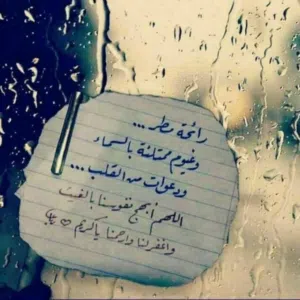 رائحة مطر ...
وغيوم ممتلئة بالسماء
ودعوات من القلب ...
اللهم أبهج نفوسنا بالغيث
واغفر لنا وارحمنا يا كريم